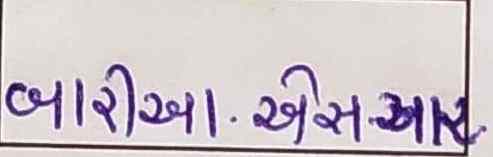 બારીઆ. એસ.આર.